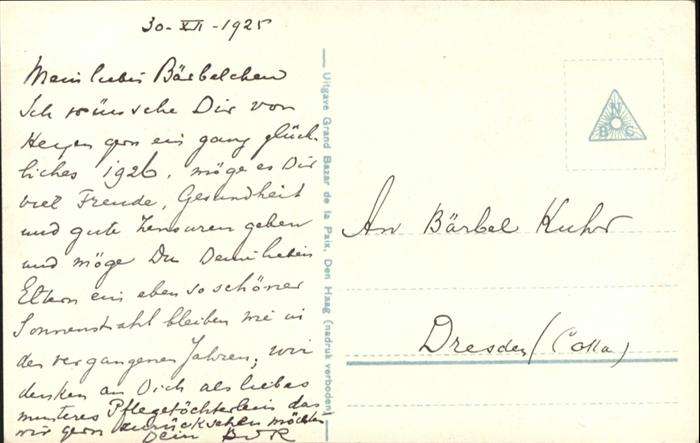 30-XII-1925
Mein liebes Bärbelchen
Ich wünsche Dir von
Herzen gern ein ganz glück-
liches 1926, möge es Dir
viel Freude, Gesundheit
und gute Zensuren geben
und möge Du Deinen lieben
Eltern ein eben so schöner
Sonnenstrahl bleiben wie in
den vergangenen Jahren, wir
denken an Dich als liebes
munteres Pflegetöchterlein das
wir gern zurücksehen möchten
Dein
Uitgave Grand Bazar de la Paix, Den Haag (nadruk verboden)
N
B C
An Bärbel Kuhr
Dresden